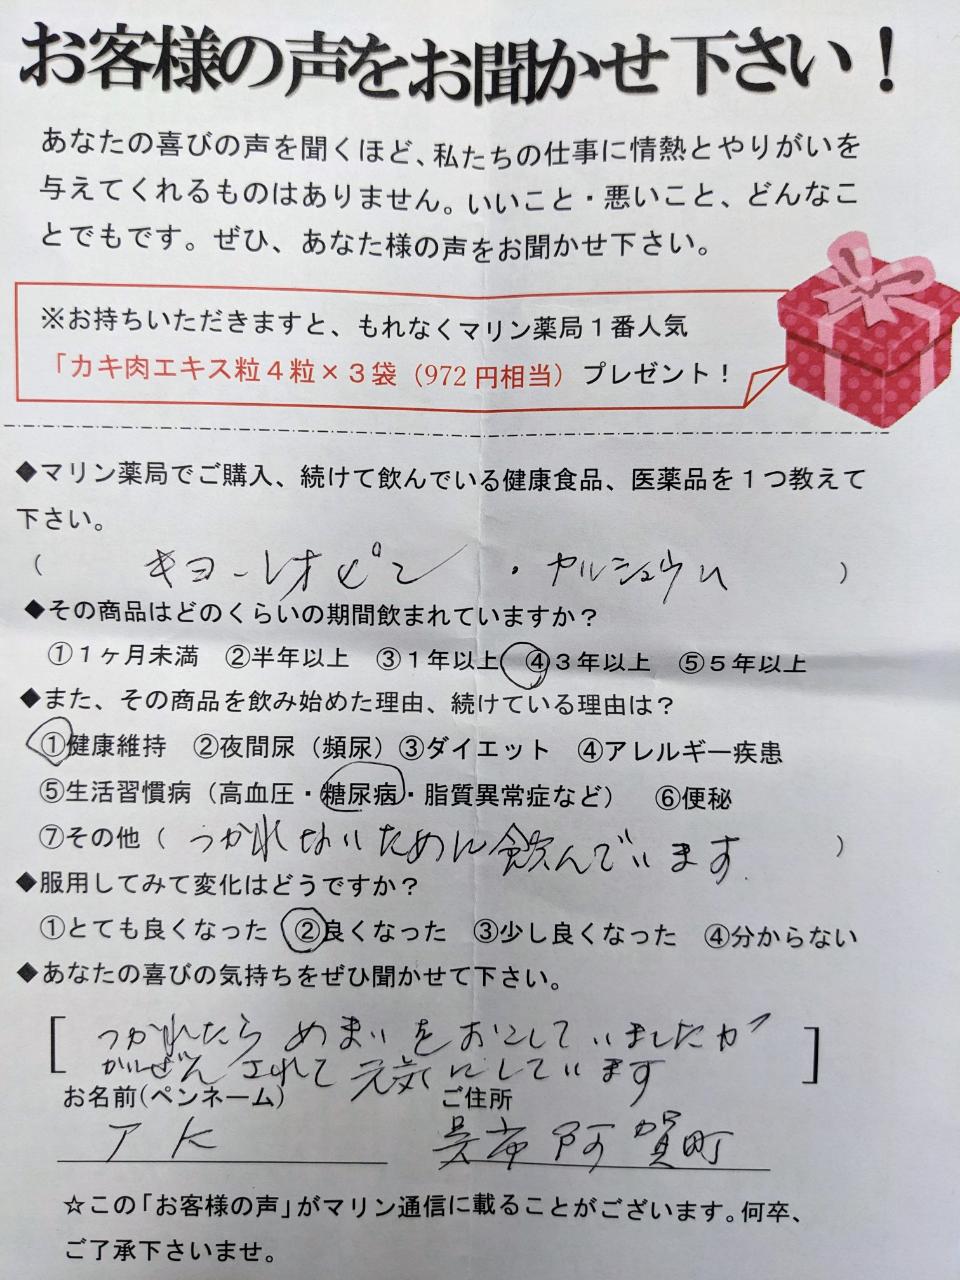 お客様の声をお聞かせ下さい！
あなたの喜びの声を聞くほど、私たちの仕事に情熱とやりがいを
与えてくれるものはありません。いいこと・悪いこと、どんなこ
とでもです。ぜひ、あなた様の声をお聞かせ下さい。
※お持ちいただきますと、もれなくマリン薬局１番人気
「カキ肉エキス粒４粒×３袋（972円相当）プレゼント！
◆マリン薬局でご購入、続けて飲んでいる健康食品、医薬品を１つ教えて
下さい。
（ キヨーレオピン ・ カルシュウム ）
◆その商品はどのくらいの期間飲まれていますか？
①１ヶ月未満 ②半年以上 ③１年以上 ④３年以上 ⑤５年以上
◆また、その商品を飲み始めた理由、続けている理由は？
①健康維持 ②夜間尿（頻尿）③ダイエット ④アレルギー疾患
⑤生活習慣病（高血圧・糖尿病・脂質異常症など） ⑥便秘
⑦その他（ つかれないために飲んでいます. ）
◆服用してみて変化はどうですか？
①とても良くなった ②良くなった ③少し良くなった ④分からない
◆あなたの喜びの気持ちをぜひ聞かせて下さい。
[ つかれたら めまいを おこしていましたが
かいぜん されて 元気にしています ]
お名前(ペンネーム) ご住所
ア K 呉市 阿賀町
☆この「お客様の声」がマリン通信に載ることがございます。何卒、
ご了承下さいませ。